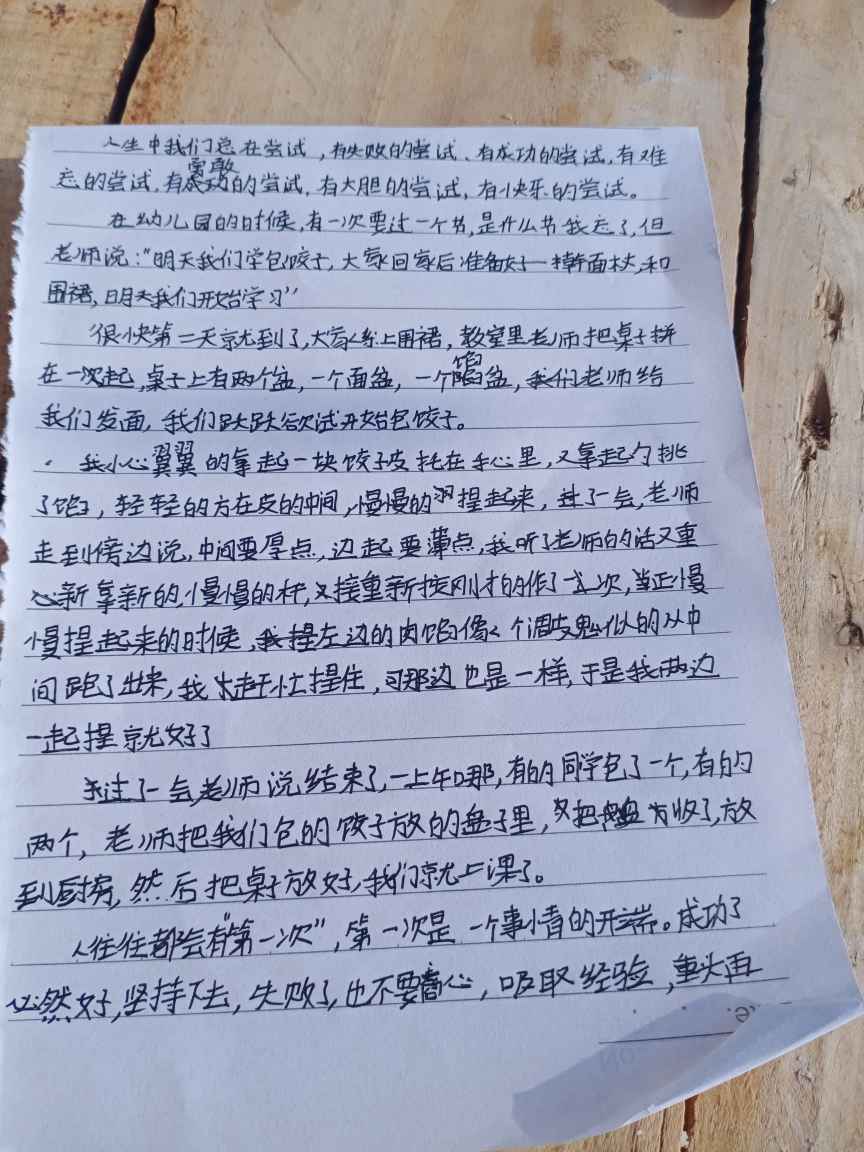 人生中我们总在尝试，有失败的尝试、有成功的尝试，有难
忘的尝试，有勇敢的尝试，有大胆的尝试，有快乐的尝试。
在幼儿园的时候，有一次要过一个节，是什么节我忘了，但
老师说："明天我们学包饺子，大家回家后准备好一擀面杖，和
围裙，明天我们开始学习"
很快第二天就到了，大家系上围裙，教室里老师把桌子拼
在一起，桌子上有两个盆，一个面盆，一个馅盆，老师给
我们发面，我们跃跃欲试开始包饺子。
我小心翼翼的拿起一块饺子皮托在手心里，又拿起勺挑
了馅，轻轻的方在皮的中间，慢慢的捏起来，过了一会，老师
走到傍边说，中间要厚点，边起要薄点，我听了老师的话又重
新拿新的，慢慢的杆，又重新按刚才的作了一次，当正慢
慢捏起来的时候，左边的肉馅像个调皮鬼似的从中
间跑了出来，我赶忙捏住，可那边也是一样，于是我两边
一起捏就好了
过了一会老师说结束了，一上午哪，有的同学包了一个，有的
两个，老师把我们包的饺子放的盘子里，又把盘收了，放
到厨房，然后把桌子放好，我们就上课了。
人往往都会有"第一次"，第一次是一个事情的开端。成功了
必然好，坚持下去，失败了，也不要心，吸取经验，重头再